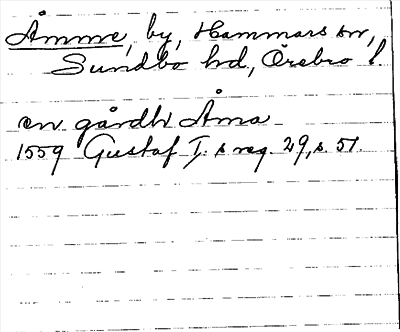 Åmme, by, Hammars sn,
Sundbo hd, Örebro l.
en gårdh Åma
1559 Gustaf I:s reg. 29, s. 51.